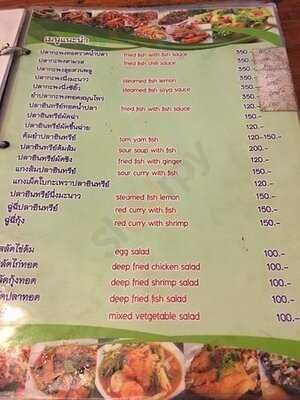 เมนูแนะนำ
ปลากะพงทอดราดน้ำปลา fried fish with fish sauce 350.-
ปลากะพงสามรส fried fish chili sauce 350.-
ปลากะพงลุยสวนพลู 350.-
ปลากะพงนึ่งมะนาว steamed fish lemon 350.-
ปลากะพงนึ่งซีอิ๊ว steamed fish soya sauce 350.-
ยำปลากะพงทอดสมุนไพร 350.-
ปลาอินทรีย์ทอดน้ำปลา fried fish with fish sauce 120.-
ปลาอินทรีย์ผัดฉ่า 150.-
ปลาอินทรีย์ผัดขึ้นฉ่าย 120.-
ต้มยำปลาอินทรีย์ tom yam fish 120.-150.-
ปลาอินทรีย์ต้มส้ม sour soup with fish 200.-
ปลาอินทรีย์ผัดขิง fried fish with ginger 120.-
แกงส้มปลาอินทรีย์ sour curry with fish 150.-
แกงเผ็ดใบกะเพราปลาอินทรีย์ 120.-
ปลาอินทรีย์นึ่งมะนาว steamed fish lemon 150.-
ฉู่ฉี่ปลาอินทรีย์ red curry with fish 150.-
ฉู่ฉี่กุ้ง red curry with shrimp 150.-
สลัดไข่ต้ม egg salad 100.-
สลัดไก่ทอด deep fried chicken salad 100.-
สลัดกุ้งทอด deep fried shrimp salad 100.-
สลัดปลาทอด deep fried fish salad 100.-
mixed vetgetable salad 100.-